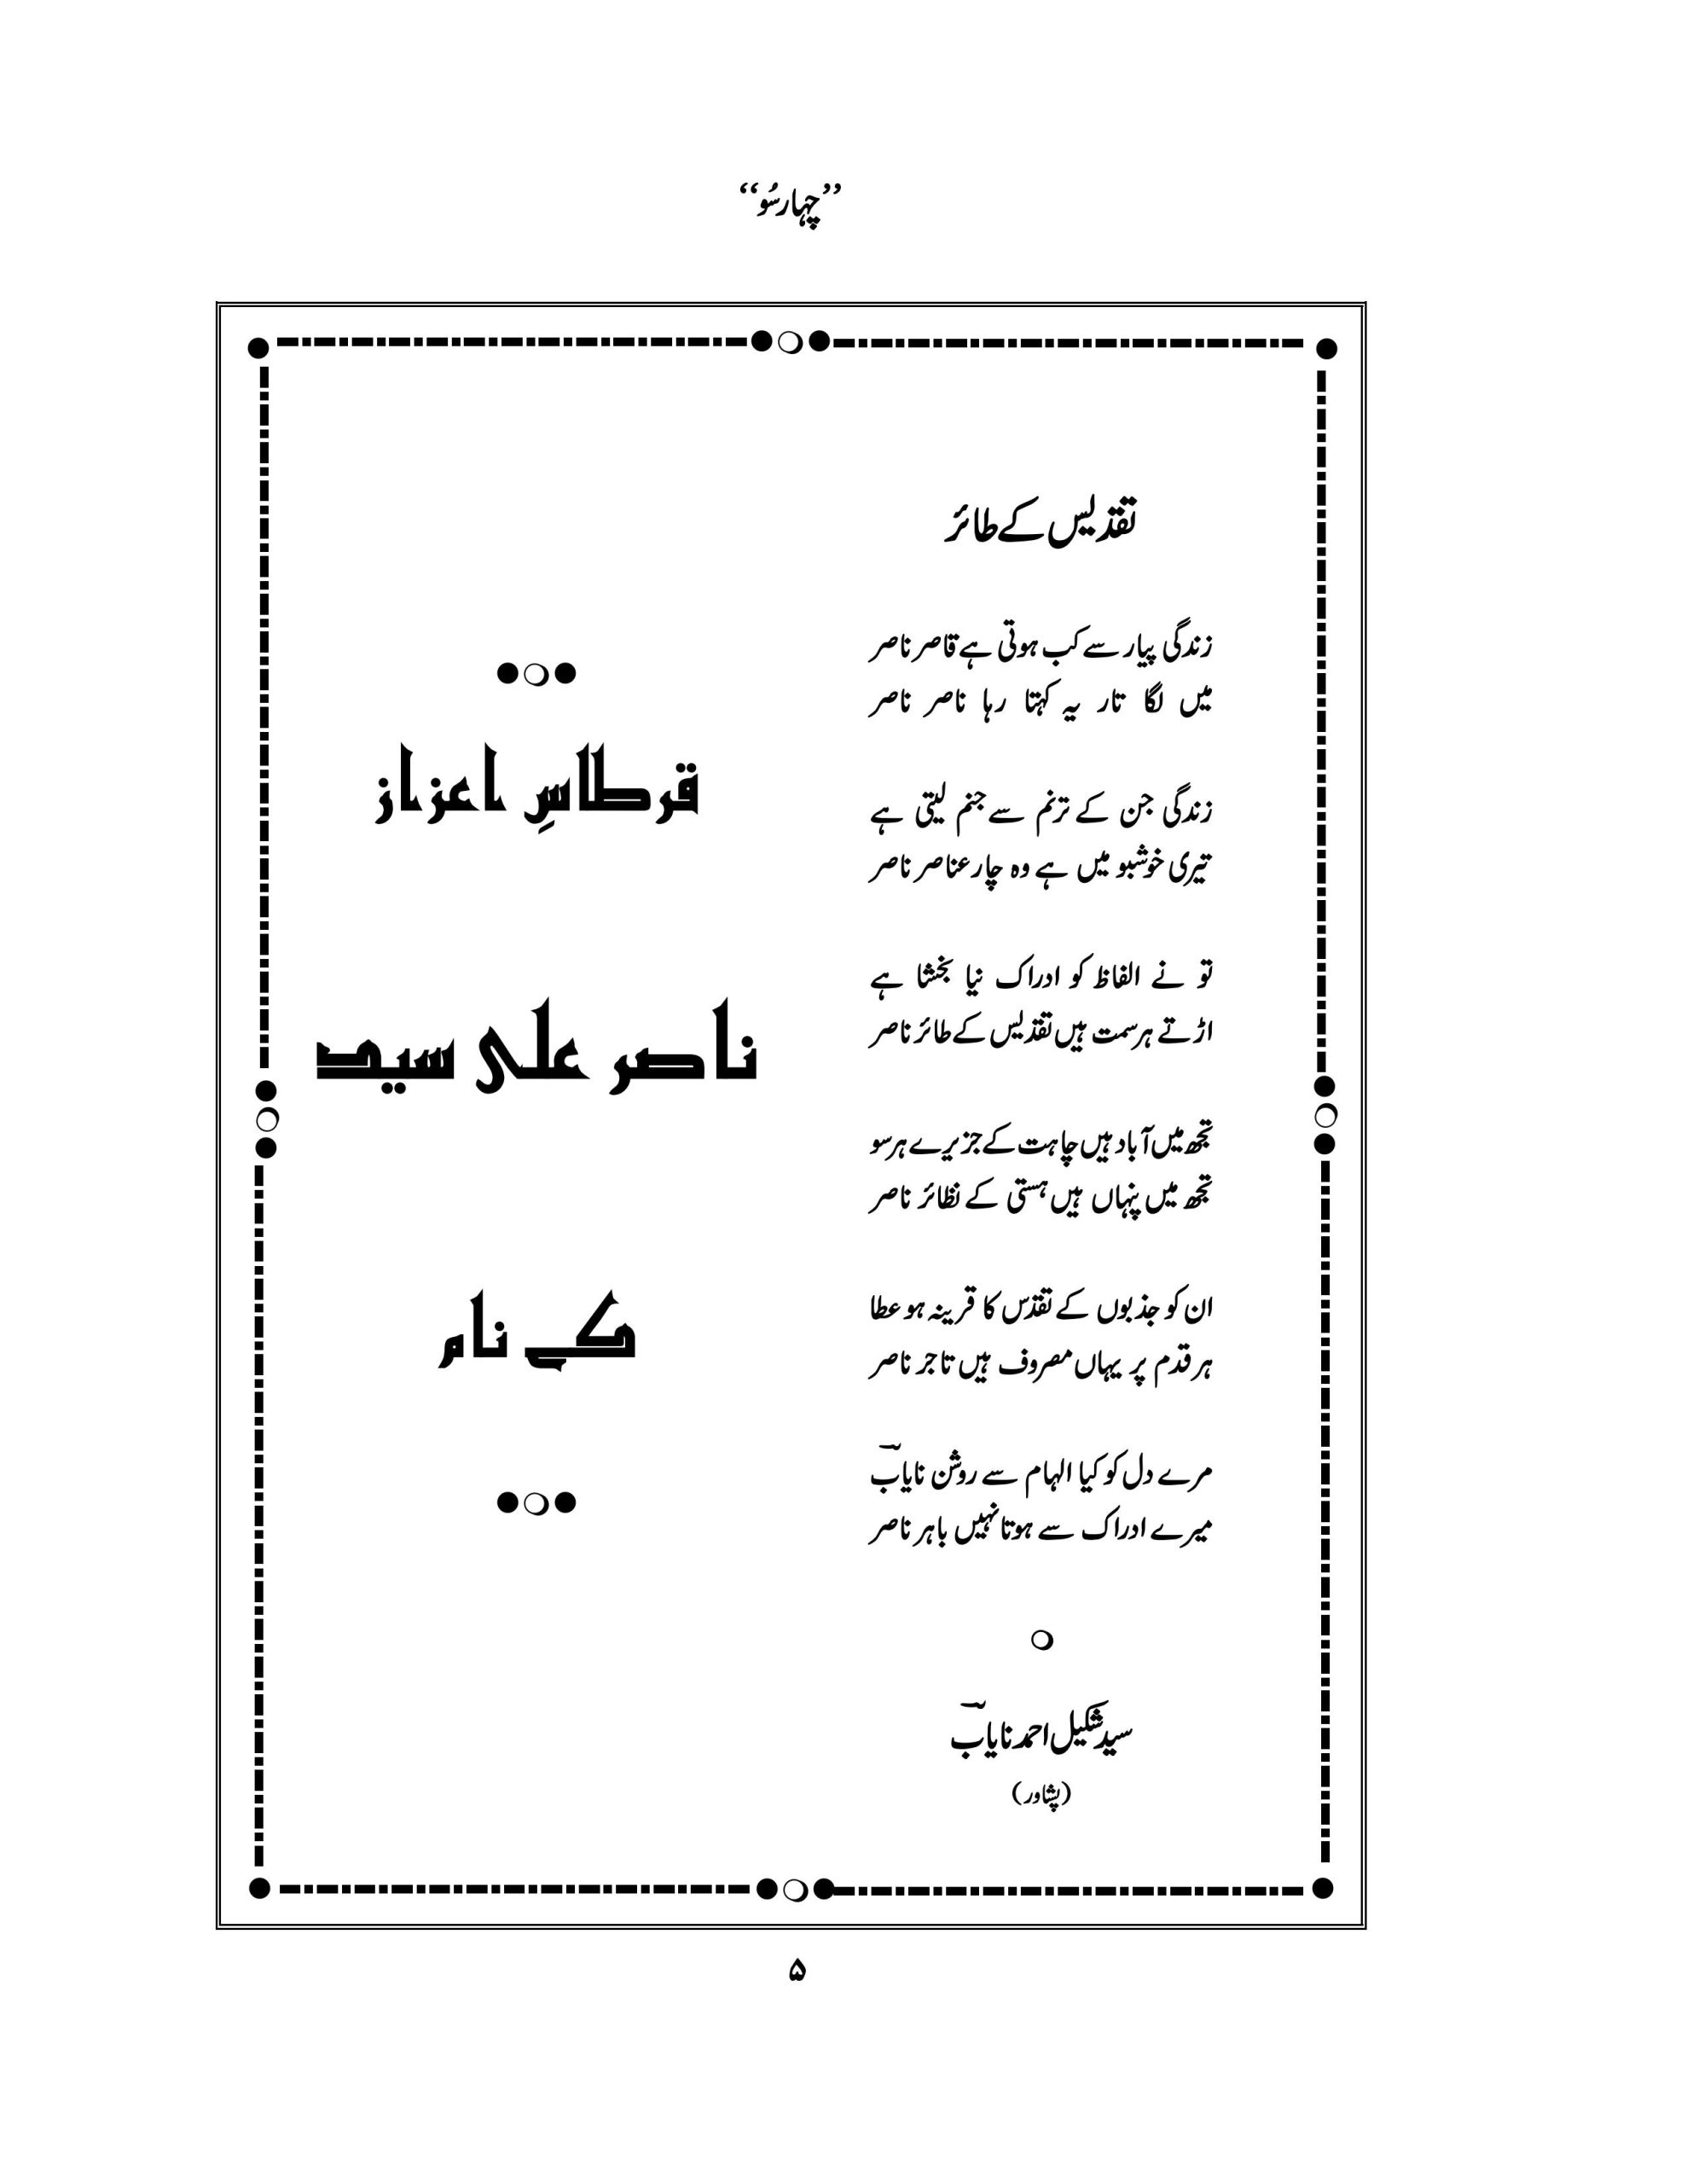 ’’چہارسُو‘‘
تقدیس کے طائر
زندگی پیار سے کب ہوتی ہے قاصر ناصر
میں لگا تار یہ کہتا رہا ناصر ناصر
زندگی جن کے ترنم سے جنم لیتی ہے
تیری خوشبو میں ہے وہ چار عناصر ناصر
تو نے الفاظ کو ادراک نیا بخشا ہے
اڑتے ہر سمت ہیں تقدیس کے طائر ناصر
تجھ میں آباد ہیں چاہت کے جزیرے ہر سو
تجھ میں پنہاں ہیں ہستی کے نظائر ناصر
ان کو جذبوں کے تقدّس کا قرینہ ہو عطا
ہر قدم پر یہاں مصروف ہیں تاجر ناصر
مرے دل کو کیا الہام سے روشن نایابؔ
میرے ادراک سے ہوتا نہیں باہر ناصر
سید شکیل احمد نایابؔ
(پشاور)
قرطاسِ اعزاز
ناصر علی سید
کے نام
۵